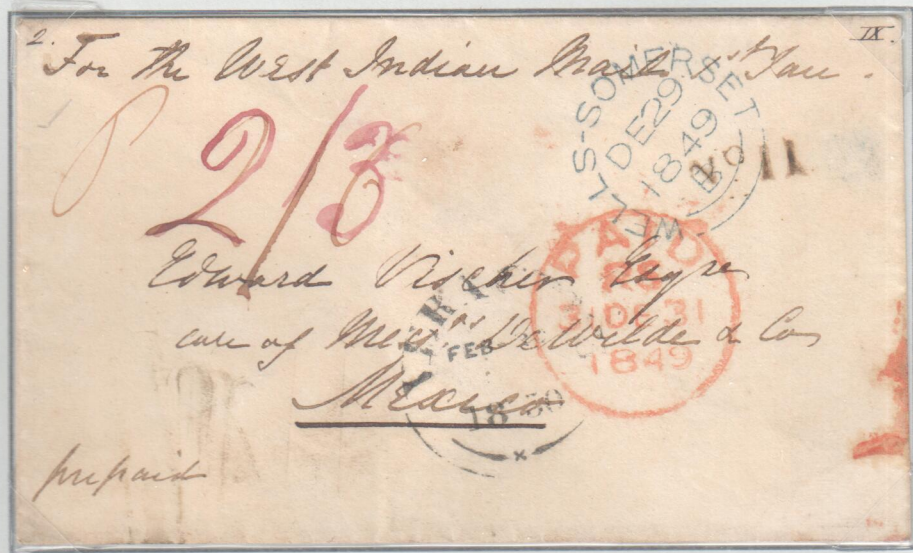 2. IX.
For the West Indian Mail 1st Jan.
2/3
WELLS-SOMERSET
DE 29
1849
B
No 11
PAID
31 DE 31
1849
Edward Vischer Esqre
care of Messrs De Wilde & Co
FEB
1850
Mexico
prepaid